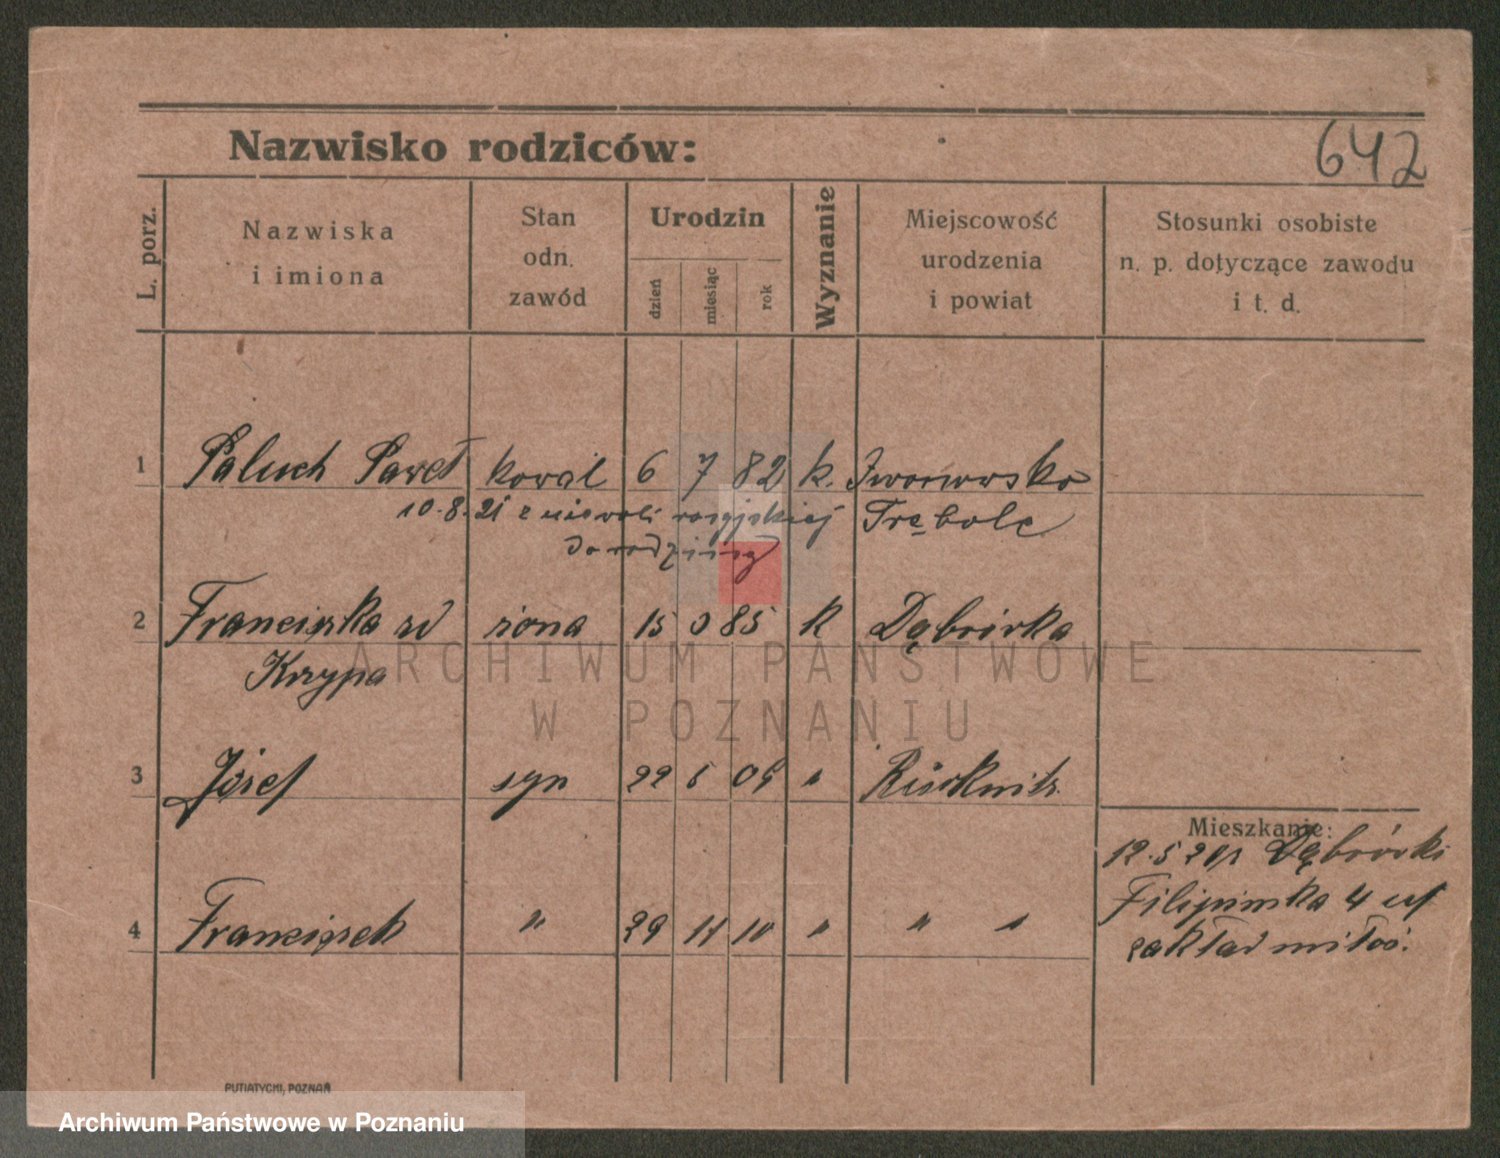 642
Nazwisko rodziców:
L. porz.
Nazwiska
i imiona
Stan
odn.
zawód
Urodzin
dzień
miesiąc
rok
Wyznanie
Miejscowość
urodzenia
i powiat
Stosunki osobiste
n. p. dotyczące zawodu
i t. d.
1 Paluch Paweł kowal 6 7 82 k.
10.8.21 z niewoli rosyjskiej Trębole
do rodziny
2 Franciszka żona 15 85 k Dąbrówka
Krzypa
3 Józef syn 22 09 "
Mieszkanie:
12.5 Dąbrówki
Filipinska 4
zakład miłoś.
4 Franciszek " 29 11 10 " " "
PUTIATYCKI, POZNAŃ
ARCHIWUM PAŃSTWOWE
W POZNANIU
Archiwum Państwowe w Poznaniu